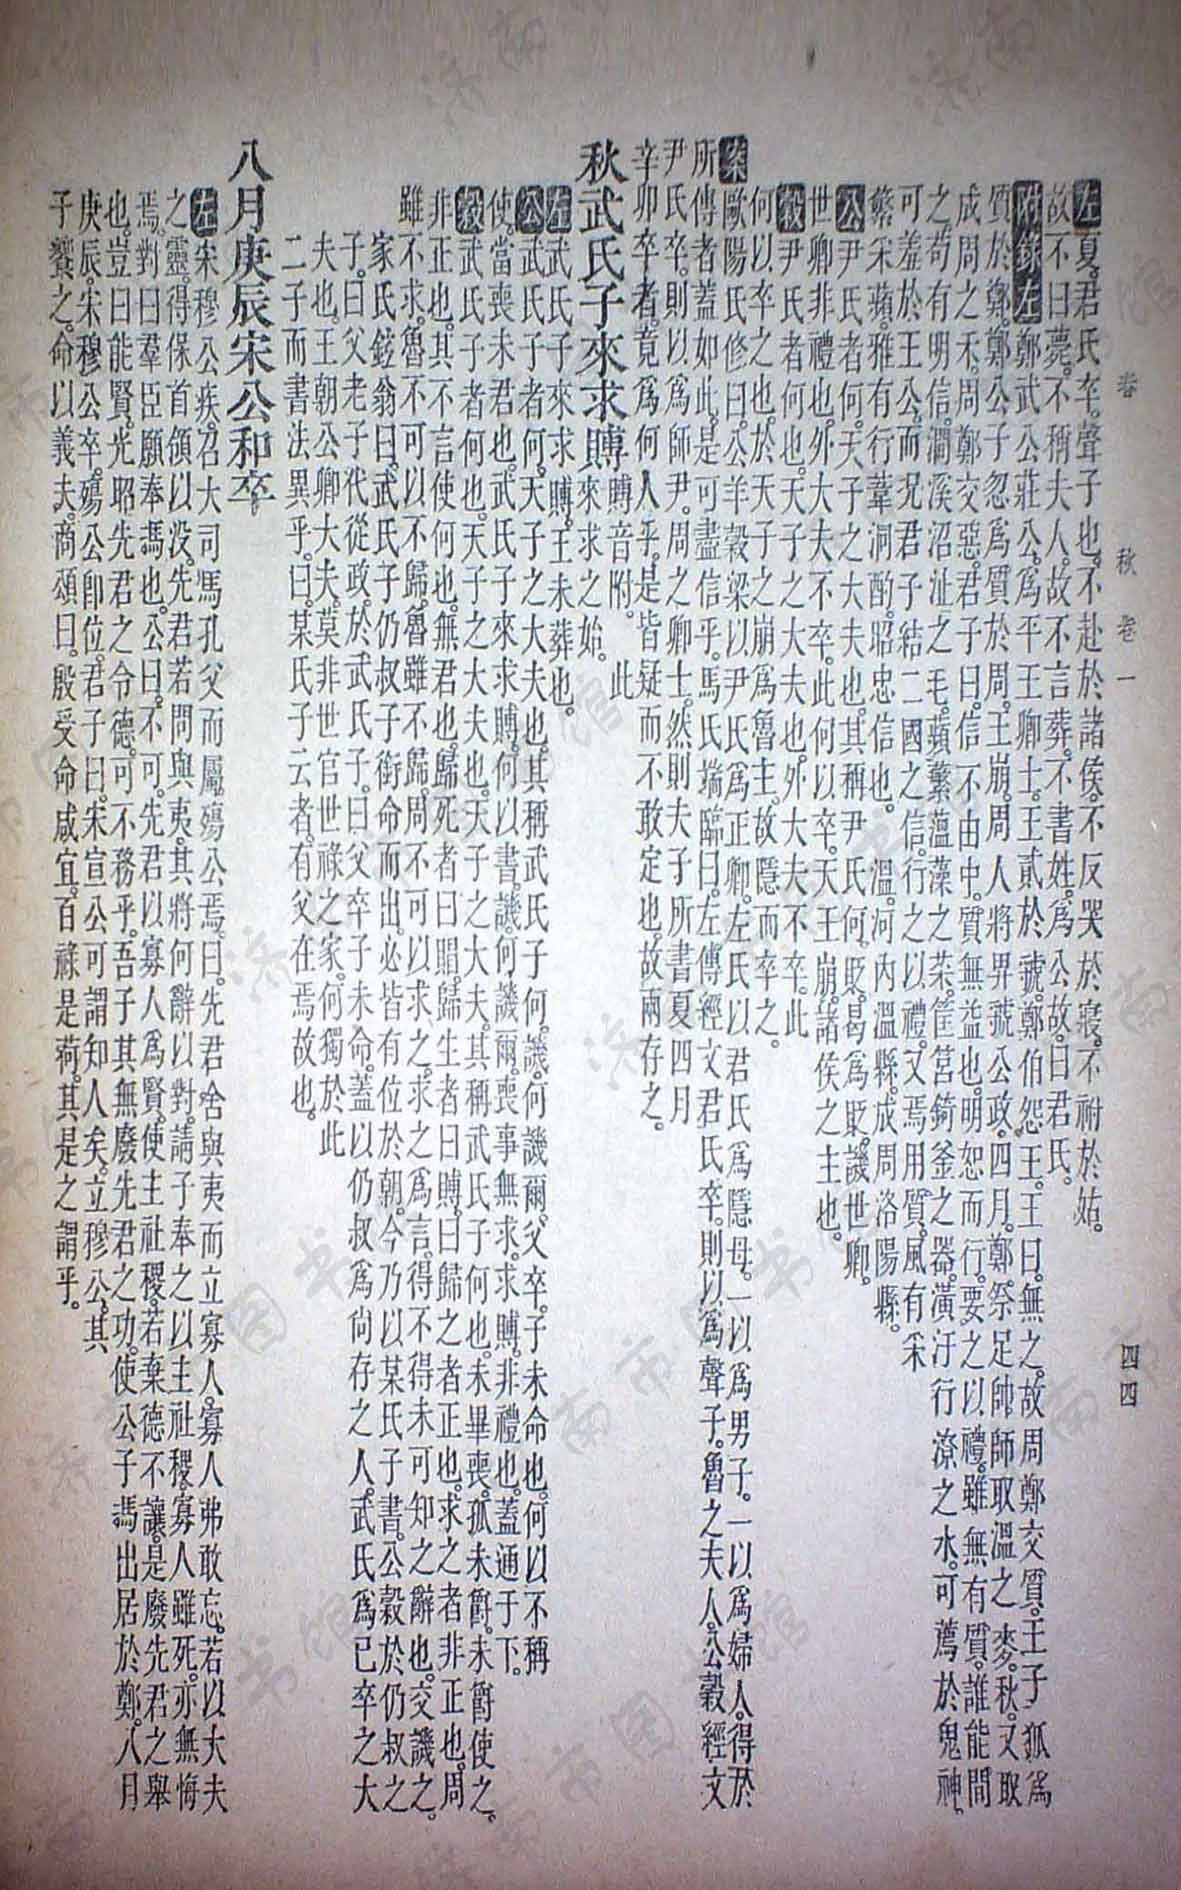 春 秋 卷一 四四
左夏。君氏卒。聲子也。不赴於諸侯。不反哭於寢。不祔於姑。
故不曰薨。不稱夫人。故不言葬。不書姓。爲公故。曰君氏。
附錄左鄭武公莊公。爲平王卿士。王貳於虢。鄭伯怨王。王曰。無之。故周鄭交質。王子狐爲
質於鄭。鄭公子忽爲質於周。王崩。周人將畀虢公政。四月。鄭祭足帥師取溫之麥。秋。又取
成周之禾。周鄭交惡。君子曰。信不由中。質無益也。明恕而行。要之以禮。雖無有質。誰能間
之。苟有明信。澗溪沼沚之毛。蘋蘩薀藻之菜。筐筥錡釜之器。潢汙行潦之水。可薦於鬼神。
可羞於王公。而況君子結二國之信。行之以禮。又焉用質。風有采
蘩采蘋。雅有行葦泂酌。昭忠信也。 溫。河內溫縣。成周洛陽縣。
公尹氏者何。天子之大夫也。其稱尹氏何。貶。曷爲貶。譏世卿。
世卿非禮也。外大夫不卒。此何以卒。天王崩。諸侯之主也。
穀尹氏者何也。天子之大夫也。外大夫不卒。此
何以卒之也。於天子之崩爲魯主。故隱而卒之。
案歐陽氏修曰。公羊穀梁以尹氏爲正卿。左氏以君氏爲隱母。一以爲男子。一以爲婦人。得於
所傳者蓋如此。是可盡信乎。馬氏端臨曰。左傳經文君氏卒。則以爲聲子。魯之夫人。公穀經文
尹氏卒。則以爲師尹。周之卿士。然則夫子所書夏四月
辛卯卒者。竟爲何人乎。是皆疑而不敢定也故兩存之。
秋武氏子來求賻 賻音附。 此
來求之始。
左武氏子來求賻。王未葬也。
公武氏子者何。天子之大夫也。其稱武氏子何。譏。何譏爾。父卒。子未命也。何以不稱
使。當喪未君也。武氏子來求賻。何以書。譏。何譏爾。喪事無求。求賻。非禮也。蓋通于下。
穀武氏子者何也。天子之大夫也。天子之大夫。其稱武氏子何也。未畢喪。孤未爵。未爵使之。
非正也。其不言使何也。無君也。歸死者曰賵。歸生者曰賻。曰歸之者正也。求之者非正也。周
雖不求。魯不可以不歸。魯雖不歸。周不可以求之。求之爲言。得不得未可知之辭也。交譏之。
家氏鉉翁曰。武氏子仍叔子銜命而出。必皆有位於朝。今乃以某氏子書。公穀於仍叔之
子。曰父老子代從政。於武氏子。曰父卒子未命。蓋以仍叔爲尙存之人。武氏爲已卒之大
夫也。王朝公卿大夫。莫非世官世祿之家。何獨於此
二子而書法異乎。曰。某氏子云者。有父在焉故也。
八月庚辰宋公和卒
左宋穆公疾。召大司馬孔父而屬殤公焉。曰。先君舍與夷而立寡人。寡人弗敢忘。若以大夫
之靈。得保首領以沒。先君若問與夷。其將何辭以對。請子奉之。以主社稷。寡人雖死。亦無悔
焉。對曰。羣臣願奉馮也。公曰。不可。先君以寡人爲賢。使主社稷。若棄德不讓。是廢先君之舉
也。豈曰能賢。光昭先君之令德。可不務乎。吾子其無廢先君之功。使公子馮出居於鄭。八月
庚辰。宋穆公卒。殤公卽位。君子曰。宋宣公可謂知人矣。立穆公。其
子饗之。命以義夫。商頌曰。殷受命咸宜。百祿是荷。其是之謂乎。